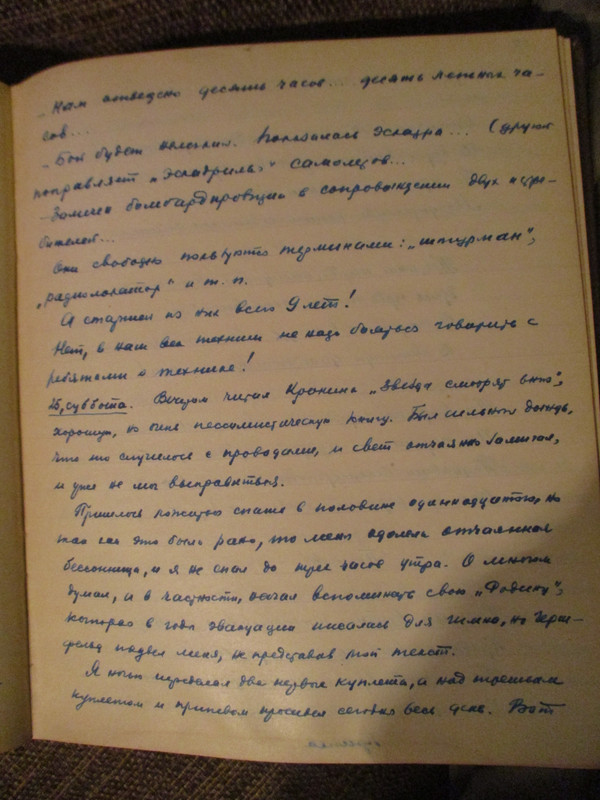 - Нам отведено десять часов... десять летных ча-
сов...
- Бой будет опасный. Показалась эскадра... (другой
поправляет „эскадрилья" самолетов...
- Замечен бомбардировщик в сопровождении двух истре-
бителей...
Они свободно пользуются терминами: „штурман",
„радиолокатор" и т. п.
А старшему из них всего 9 лет!
Нет, в наш век техники не надо бояться говорить с
ребятами о технике!
25, суббота. Вечером читал Кронина „Звезды смотрят вниз",
хорошую, но очень пессимистическую книгу. Был сильный дождь,
что-то случилось с проводами, и свет отчаянно замигал,
и уже не мог выправиться.
Пришлось ложиться спать в половине одиннадцатого, но
так как это было рано, то меня одолела отчаянная
бессонница, и я не спал до трех часов утра. О многом
думал, и в частности, начал вспоминать свою „Родину",
которая в годы эвакуации писалась для гимна, но Герш-
фельд подвел меня, не представив мой текст.
Я ночью переделал два первых куплета, а над третьим
куплетом и припевом просидел сегодня весь день. Вот